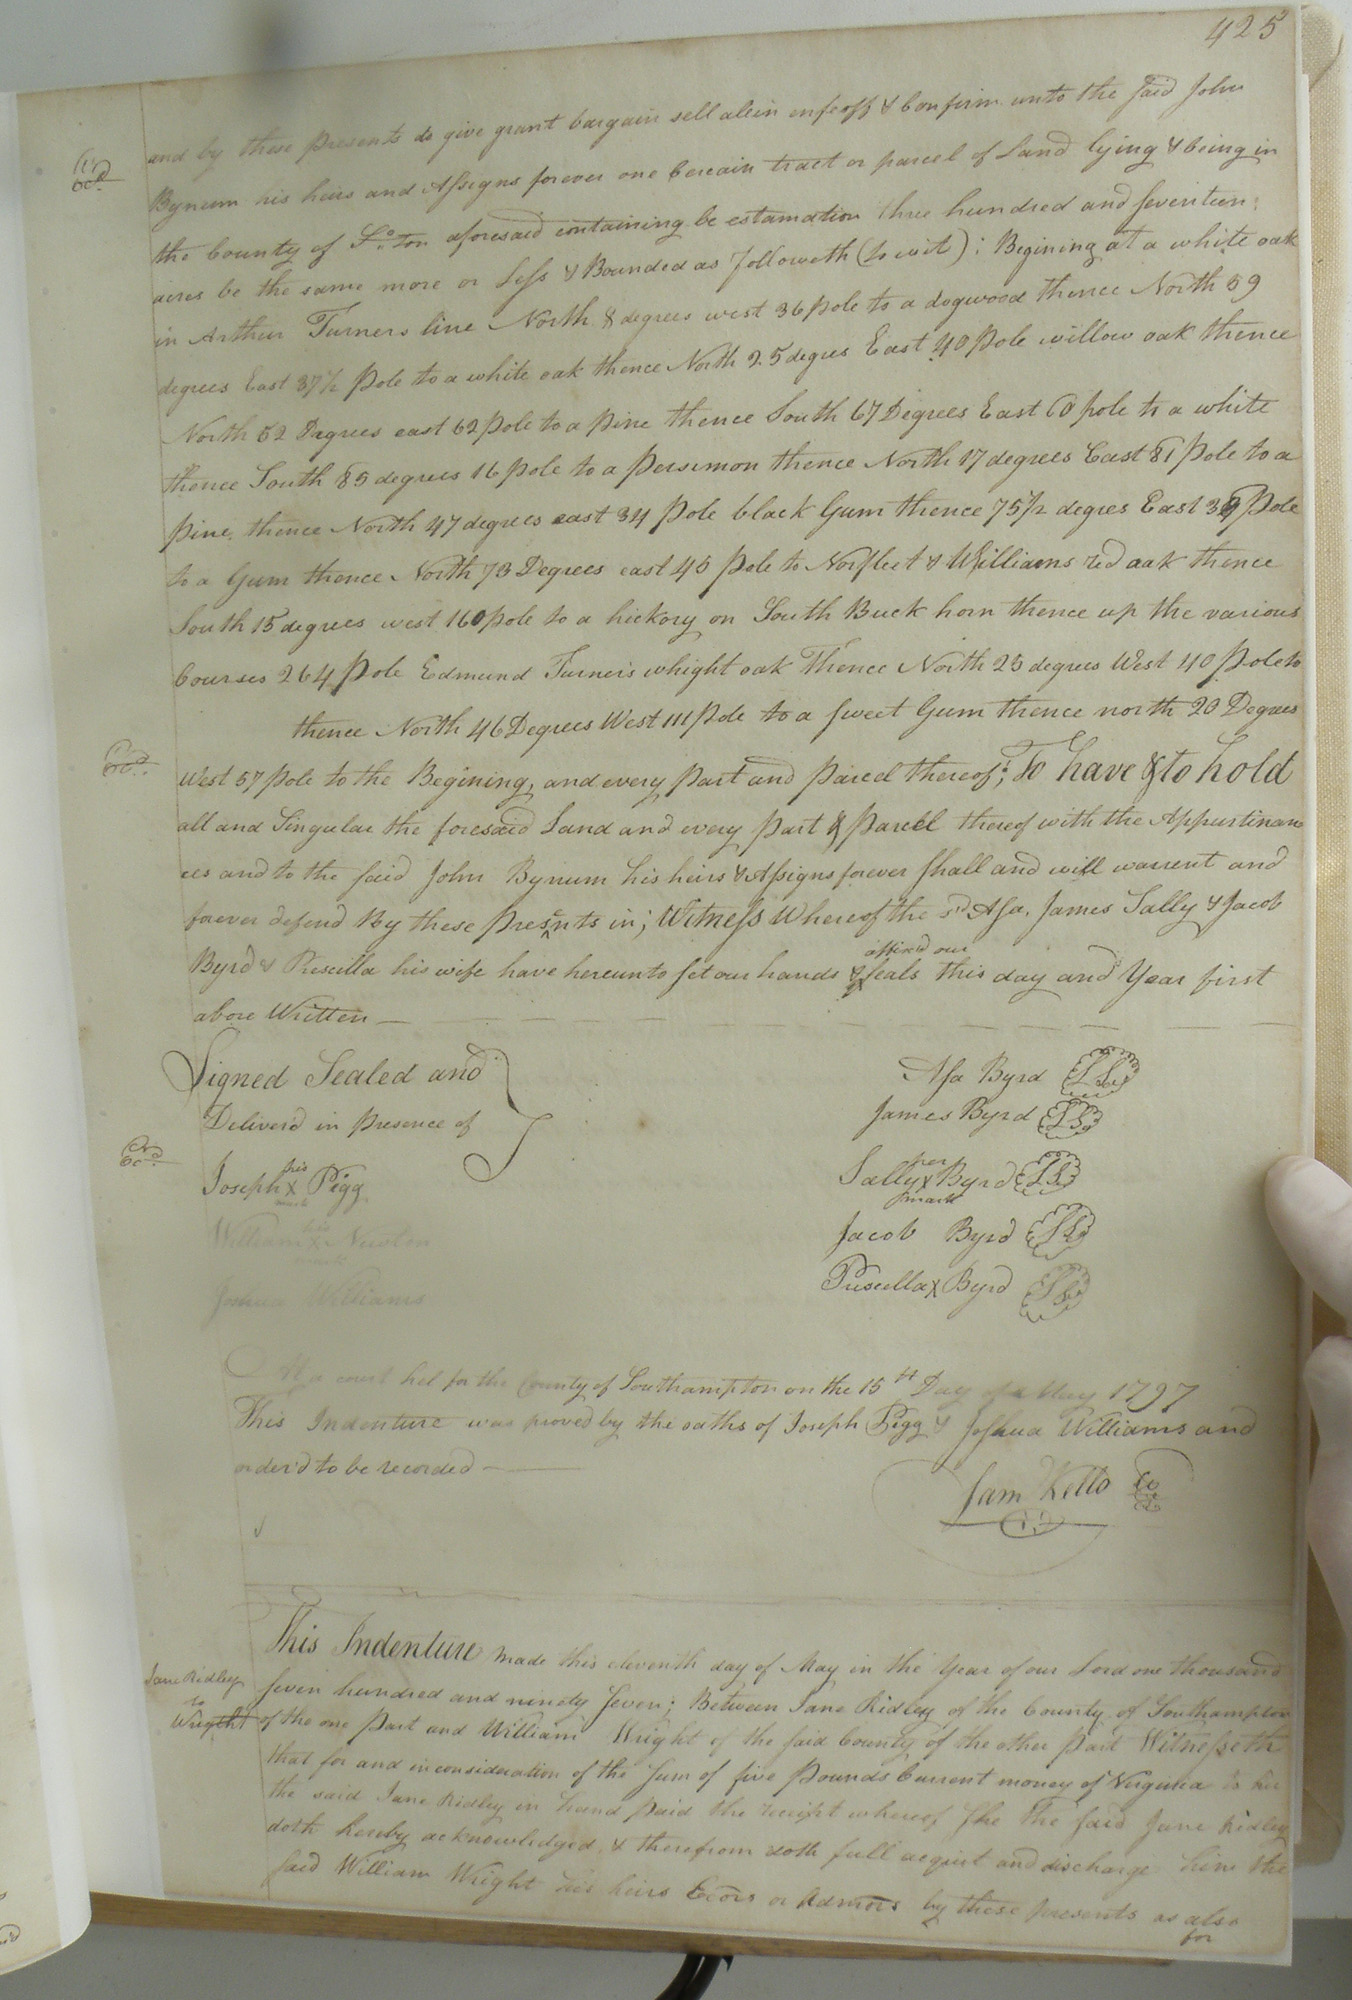 425
and by these presents do give grant bargain sell alein enfeoff & Confirm unto the said John
Bynum his heirs and Assigns forever one Cercain tract or parcel of Land lying & being in
the County of So.ton aforesaid containing be estamation three hundred and seventeen
acres be the same more or Less & Bounded as followeth (to wit); Begining at a white oak
in Arthur Turners line North 8 degrees west 36 pole to a dogwood thence North 59
degrees East 37½ pole to a white oak thence North 25 degres East 40 Pole willow oak thence
North 52 Degrees east 62 pole to a pine thence South 67 Degrees East 60 pole to a white
thence South 85 degrees 16 pole to a persimon thence North 17 degrees East 81 Pole to a
pine thence North 47 degrees east 34 pole black Gum thence 75½ degres East 39 Pole
to a Gum thence North 73 Degrees east 45 pole to Norfleet & Williams red oak thence
South 15 degrees west 160 pole to a hickory on South Buck horn thence up the various
Courses 264 Pole Edmund Turners whight oak Thence North 25 degrees West 40 Pole to
thence North 46 Degrees West 111 pole to a sweet Gum thence north 20 Degrees
West 57 pole to the Begining, and every Part and parcel thereof; To have & to hold
all and Singular the foresaid Land and every Part & Parcel thereof with the Appurtinan
ces and to the said John Bynum his heirs & Assigns forever shall and will warrent and
forever defend By these presents in; Witness Whereof the sd. Asa, James Sally & Jacob
affixed our
Byrd & Priscilla his wife have hereunto set our hands & seals this day and Year first
above Written
Signed Sealed and
Deliver'd in presence of
Asa Byrd LS
James Byrd LS
his
Joseph X Pigg
mark
her
Sally X Byrd LS
mark
William X Newton
Jacob Byrd LS
Joshua Williams
Priscilla X Byrd LS
At a court hel for the County of Southampton on the 15th Day of May 1797
This Indenture was proved by the oaths of Joseph Pigg & Joshua Williams and
order'd to be recorded
Sam Kello
This Indenture made this eleventh day of May in the Year of our Lord one thousand
Jane Ridley
to
Wright
seven hundred and ninety seven; Between Jane Ridley of the County of Southampton
of the one Part and William Wright of the said County of the other part Witnesseth
that for and in consideration of the sum of five Pounds Current money of Virginia to her
the said Jane Ridley in hand paid the receipt whereof she The said Jane Ridley
doth hereby acknowledged, & therefrom doth full acquit and discharge him the
said William Wright his heirs Ecors or Admors by these presents as also
for